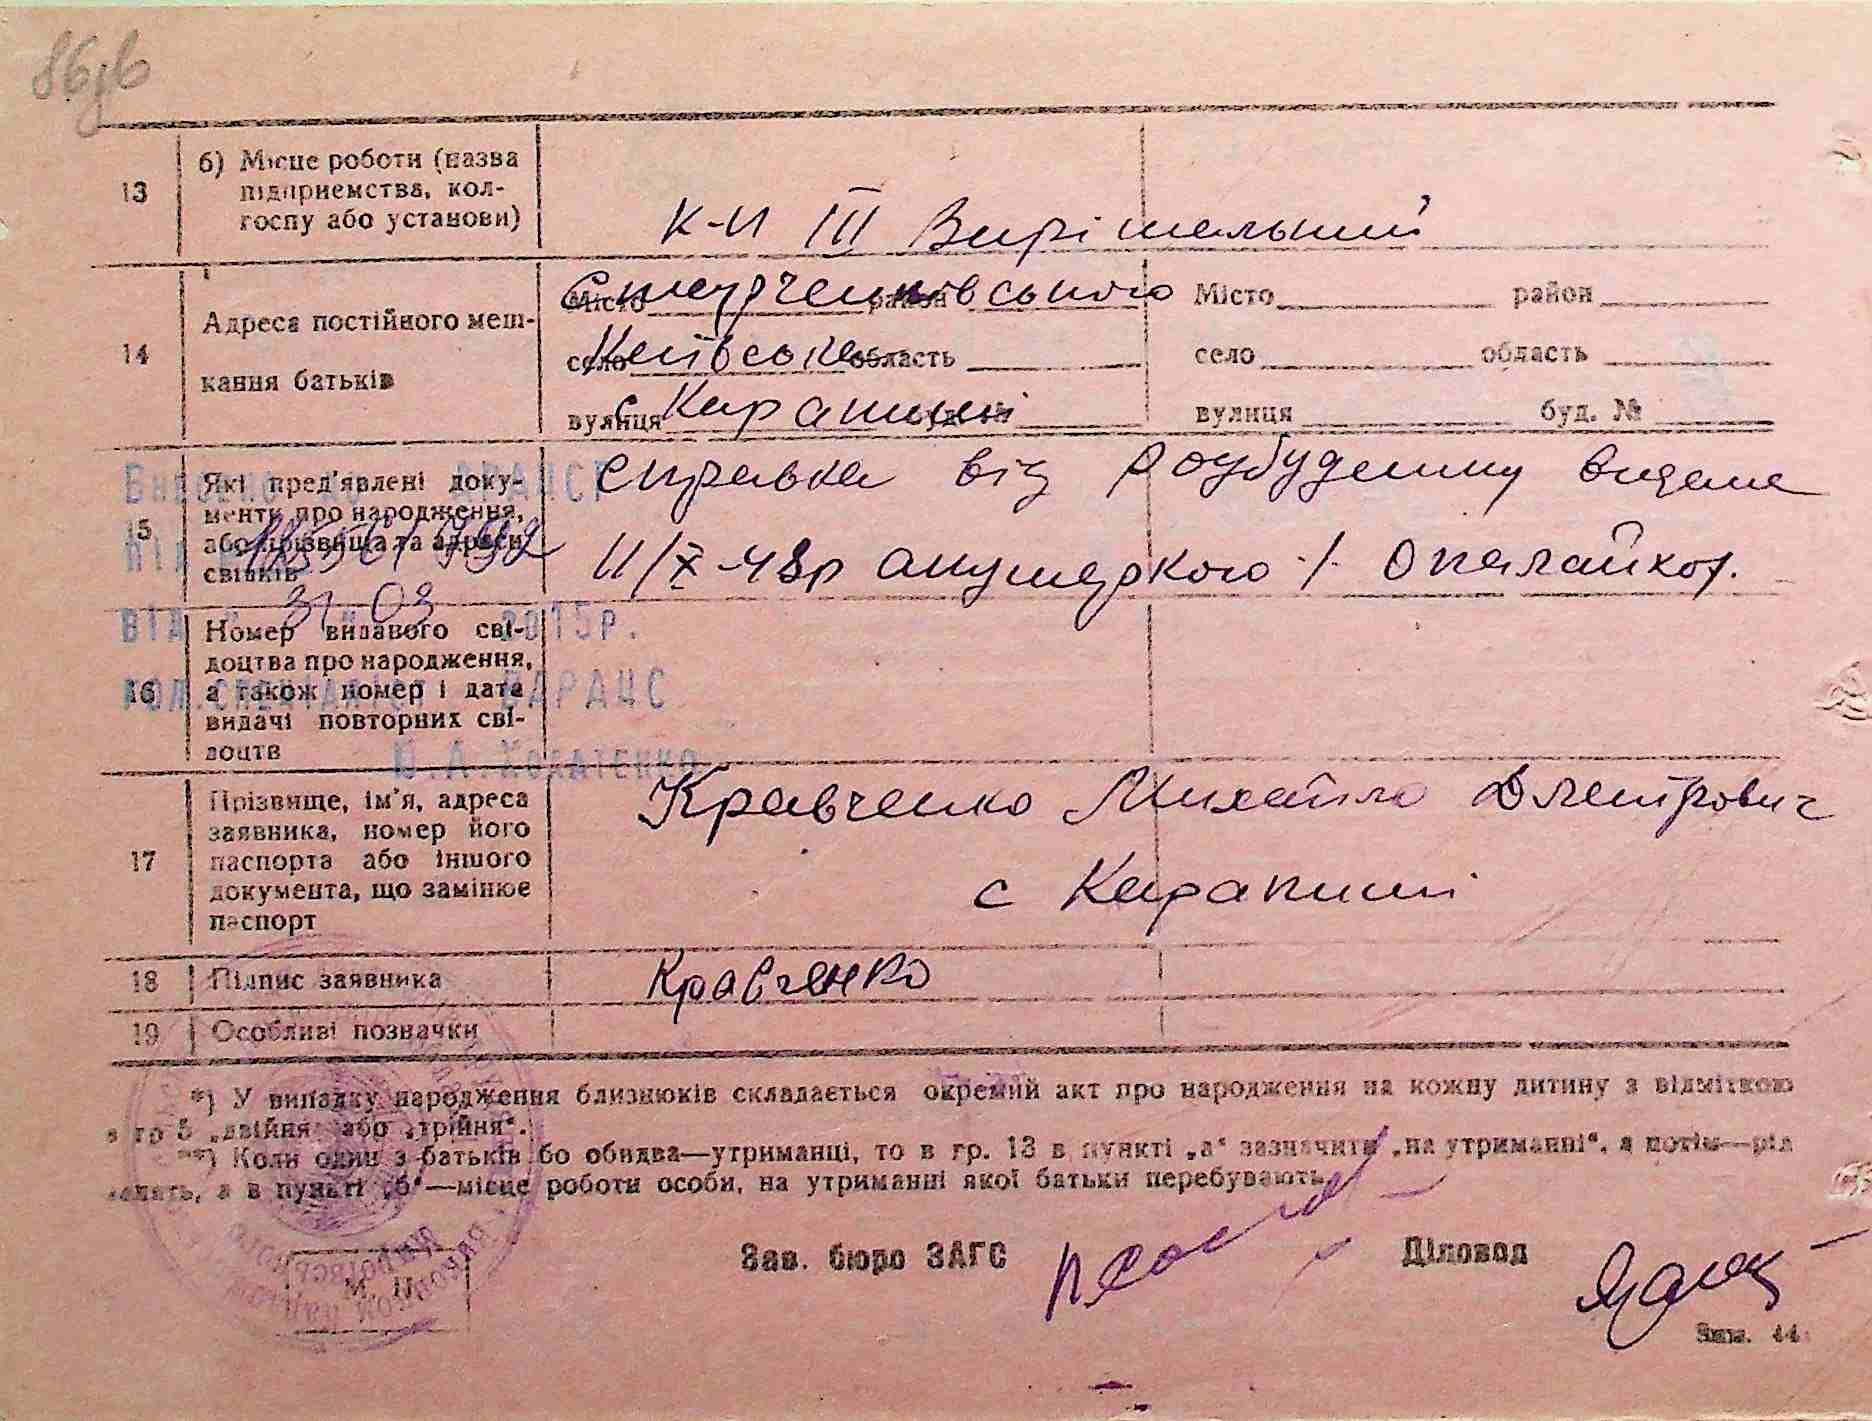 86/в
13
б) Місце роботи (назва
підприємства, кол-
госпу або установи)
К-п III Вирішальний
14
Адреса постійного меш-
кання батьків
Місто район
село Київська область
вулиця с Кирапиші
Місто район
село область
вулиця буд. №
15
Які пред'явлені доку-
менти про народження,
або прізвища та адреси
свідків
справка від родбудинку видана
11/X-48р
31 03
ВІД 2015р.
16
Номер виданого сві-
доцтва про народження,
а також номер і дата
видачі повторних сві-
доцтв
ГОЛ.СПЕЦІАЛІСТ ВДРАЦС
17
Прізвище, ім'я, адреса
заявника, номер його
паспорта або іншого
документа, що замінює
паспорт
Кравченко Михайло Дмитрович
с Кирапиші
18
Підпис заявника
Кравченко
19
Особливі позначки
*) У випадку народження близнюків складається окремий акт про народження на кожну дитину з відміткою
в гр 5 „двійня" або „трійня".
**) Коли один з батьків бо обидва—утриманці, то в гр. 13 в пункті „а" зазначити „на утриманні", а потім—рід
занять, а в пункті „б"—місце роботи особи, на утриманні якої батьки перебувають.
Зав. бюро ЗАГС
Діловод
М. П.